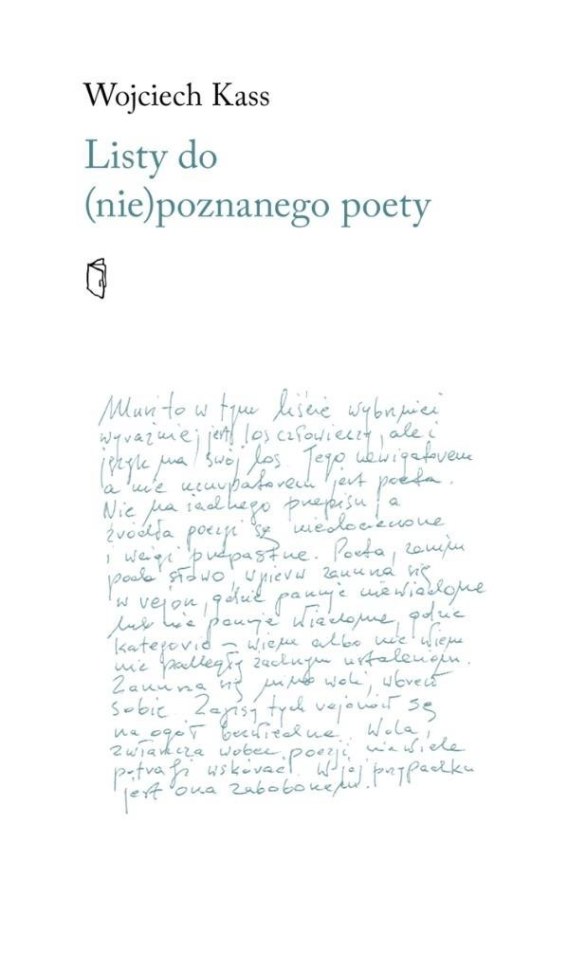 Wojciech Kass
Listy do
(nie)poznanego poety
Mimo to w tym liście wybrzmieć
wyraźniej jest los człowieczy, ale i
język ma swój los. Jego nawigatorem
a nie uzurpatorem jest poeta.
Nie ma żadnego przepisu, a
źródła poezji są niedocieczone
i wciąż przepastne. Poeta, zanim
poda słowo, wpierw zanurza się
w rejon, gdzie panuje niewiadome
lub nie panuje wiadome, gdzie
kategorie – wiem albo nie wiem
nie podległy żadnym ustaleniom.
Zanurza się mimo woli, wbrew
sobie. Zapisy tych rejonów są
na ogół bezwiedne. Wola,
zwłaszcza wobec poezji niewiele
potrafi wskórać. W jej przypadku
jest ona zabobonem.